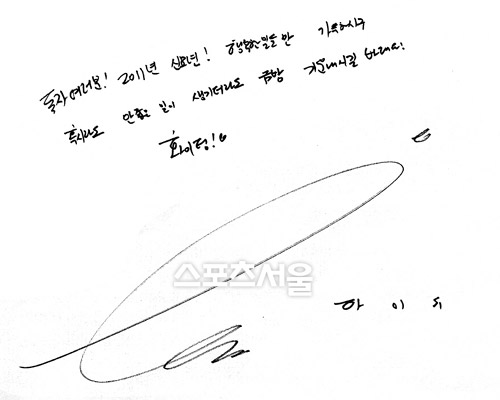 독자 여러분! 2011년 신묘년! 행복한 일들만 가득하시구
혹시라도 안좋은 일이 생기더라도 금방 지나가시길 바래요!
화이팅!
스포츠서울
하 이